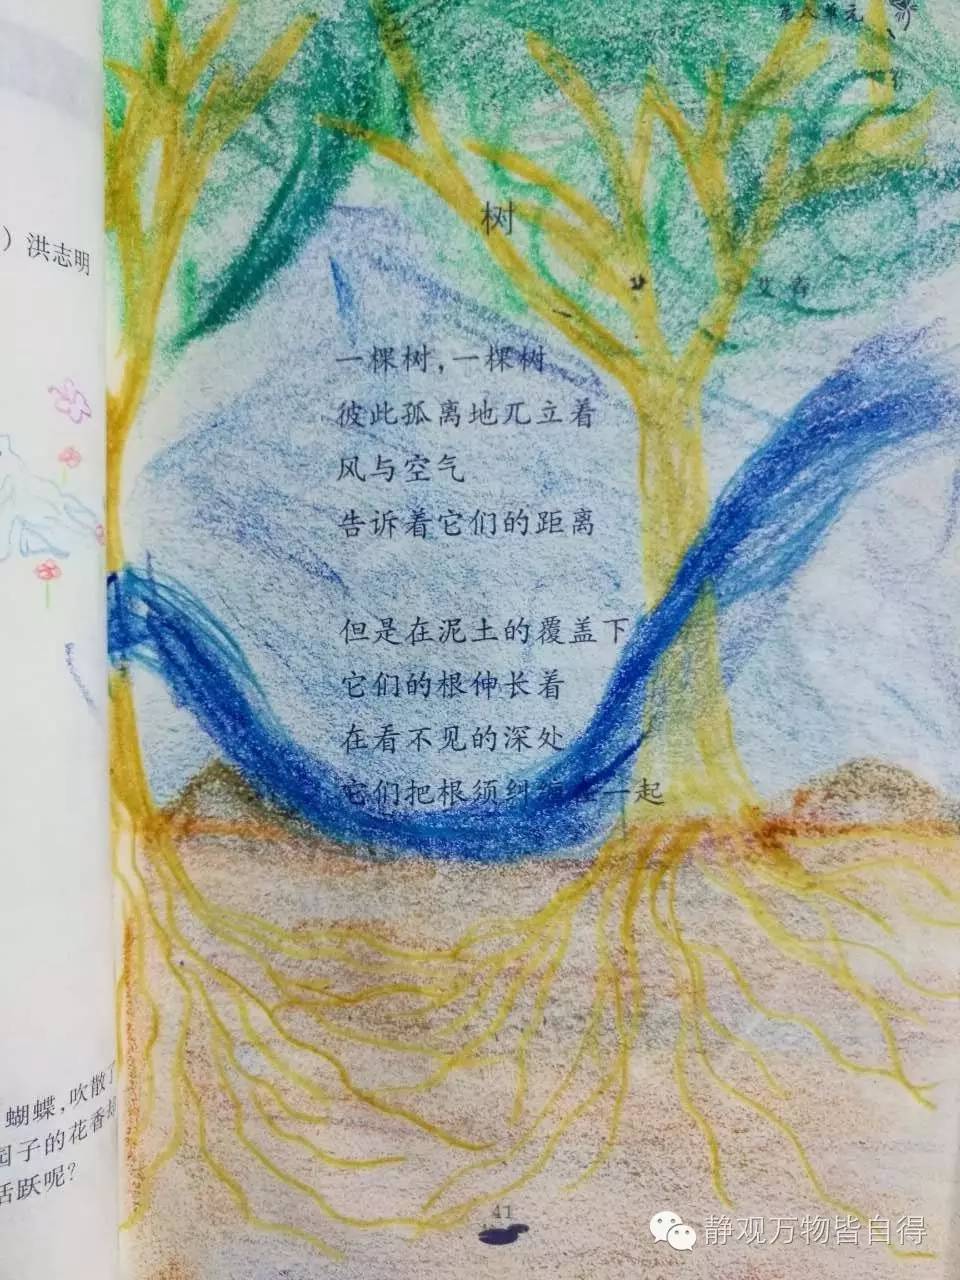 第八单元
）洪志明
树
艾青
一棵树，一棵树
彼此孤离地兀立着
风与空气
告诉着它们的距离
但是在泥土的覆盖下
它们的根伸长着
在看不见的深处
它们把根须纠缠在一起
蝴蝶，吹散
子的花香
跃呢？
41
静观万物皆自得